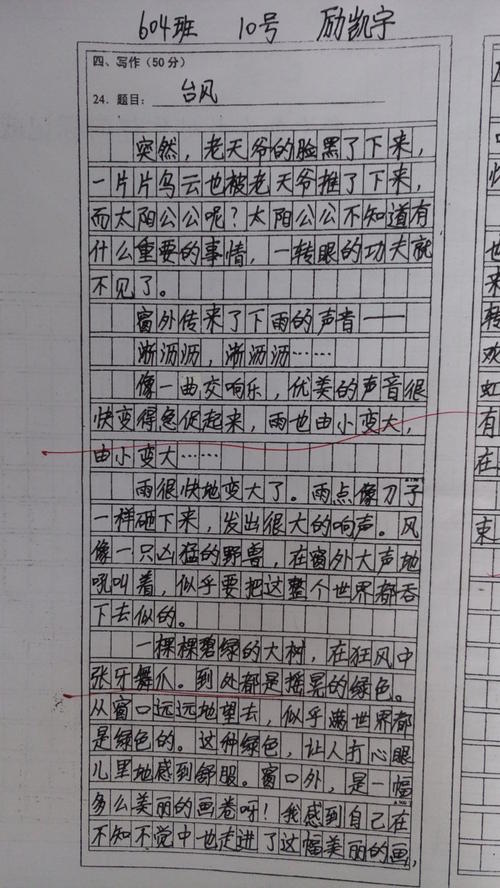 604班 10号 励凯宇
四、写作(50分)
24. 题目: 台风
突然,老天爷的脸黑了下来,
一片片乌云也被老天爷推了下来,
而太阳公公呢?太阳公公不知道有
什么重要的事情,一转眼的功夫就
不见了。
窗外传来了下雨的声音——
淅沥沥,淅沥沥……
像一曲交响乐,优美的声音很
快变得急促起来,雨也由小变大,
由小变大……
雨很快地变大了。雨点像刀子
一样砸下来,发出很大的响声。风
像一只凶猛的野兽,在窗外大声地
吼叫着,似乎要把这整个世界都吞
下去似的。
一棵棵碧绿的大树,在狂风中
张牙舞爪。到处都是摇晃的绿色。
从窗口远远地望去,似乎满世界都
是绿色的。这种绿色,让人打心眼
儿里地感到舒服。窗口外,是一幅
多么美丽的画卷呀!我感到自己在
不知不觉中也走进了这幅美丽的画,
也
来
转
欢
虹
有
束